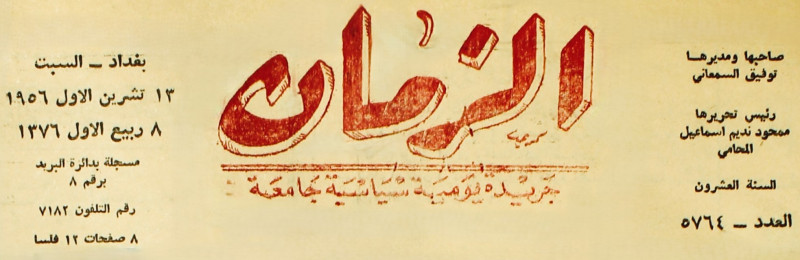 صاحبها ومديرها
توفيق السمعاني
رئيس تحريرها
ممحود نديم اسماعيل
المحامي
السنة العشرون
العدد – ٥٧٦٤
الزمان
جريدة يومية سياسية جامعة
بغداد – السبت
١٣ تشرين الاول ١٩٥٦
٨ ربيع الاول ١٣٧٦
مسجلة بدائرة البريد
برقم ٨
رقم التلفون ٧١٨٢
٨ صفحات ١٢ فلسا